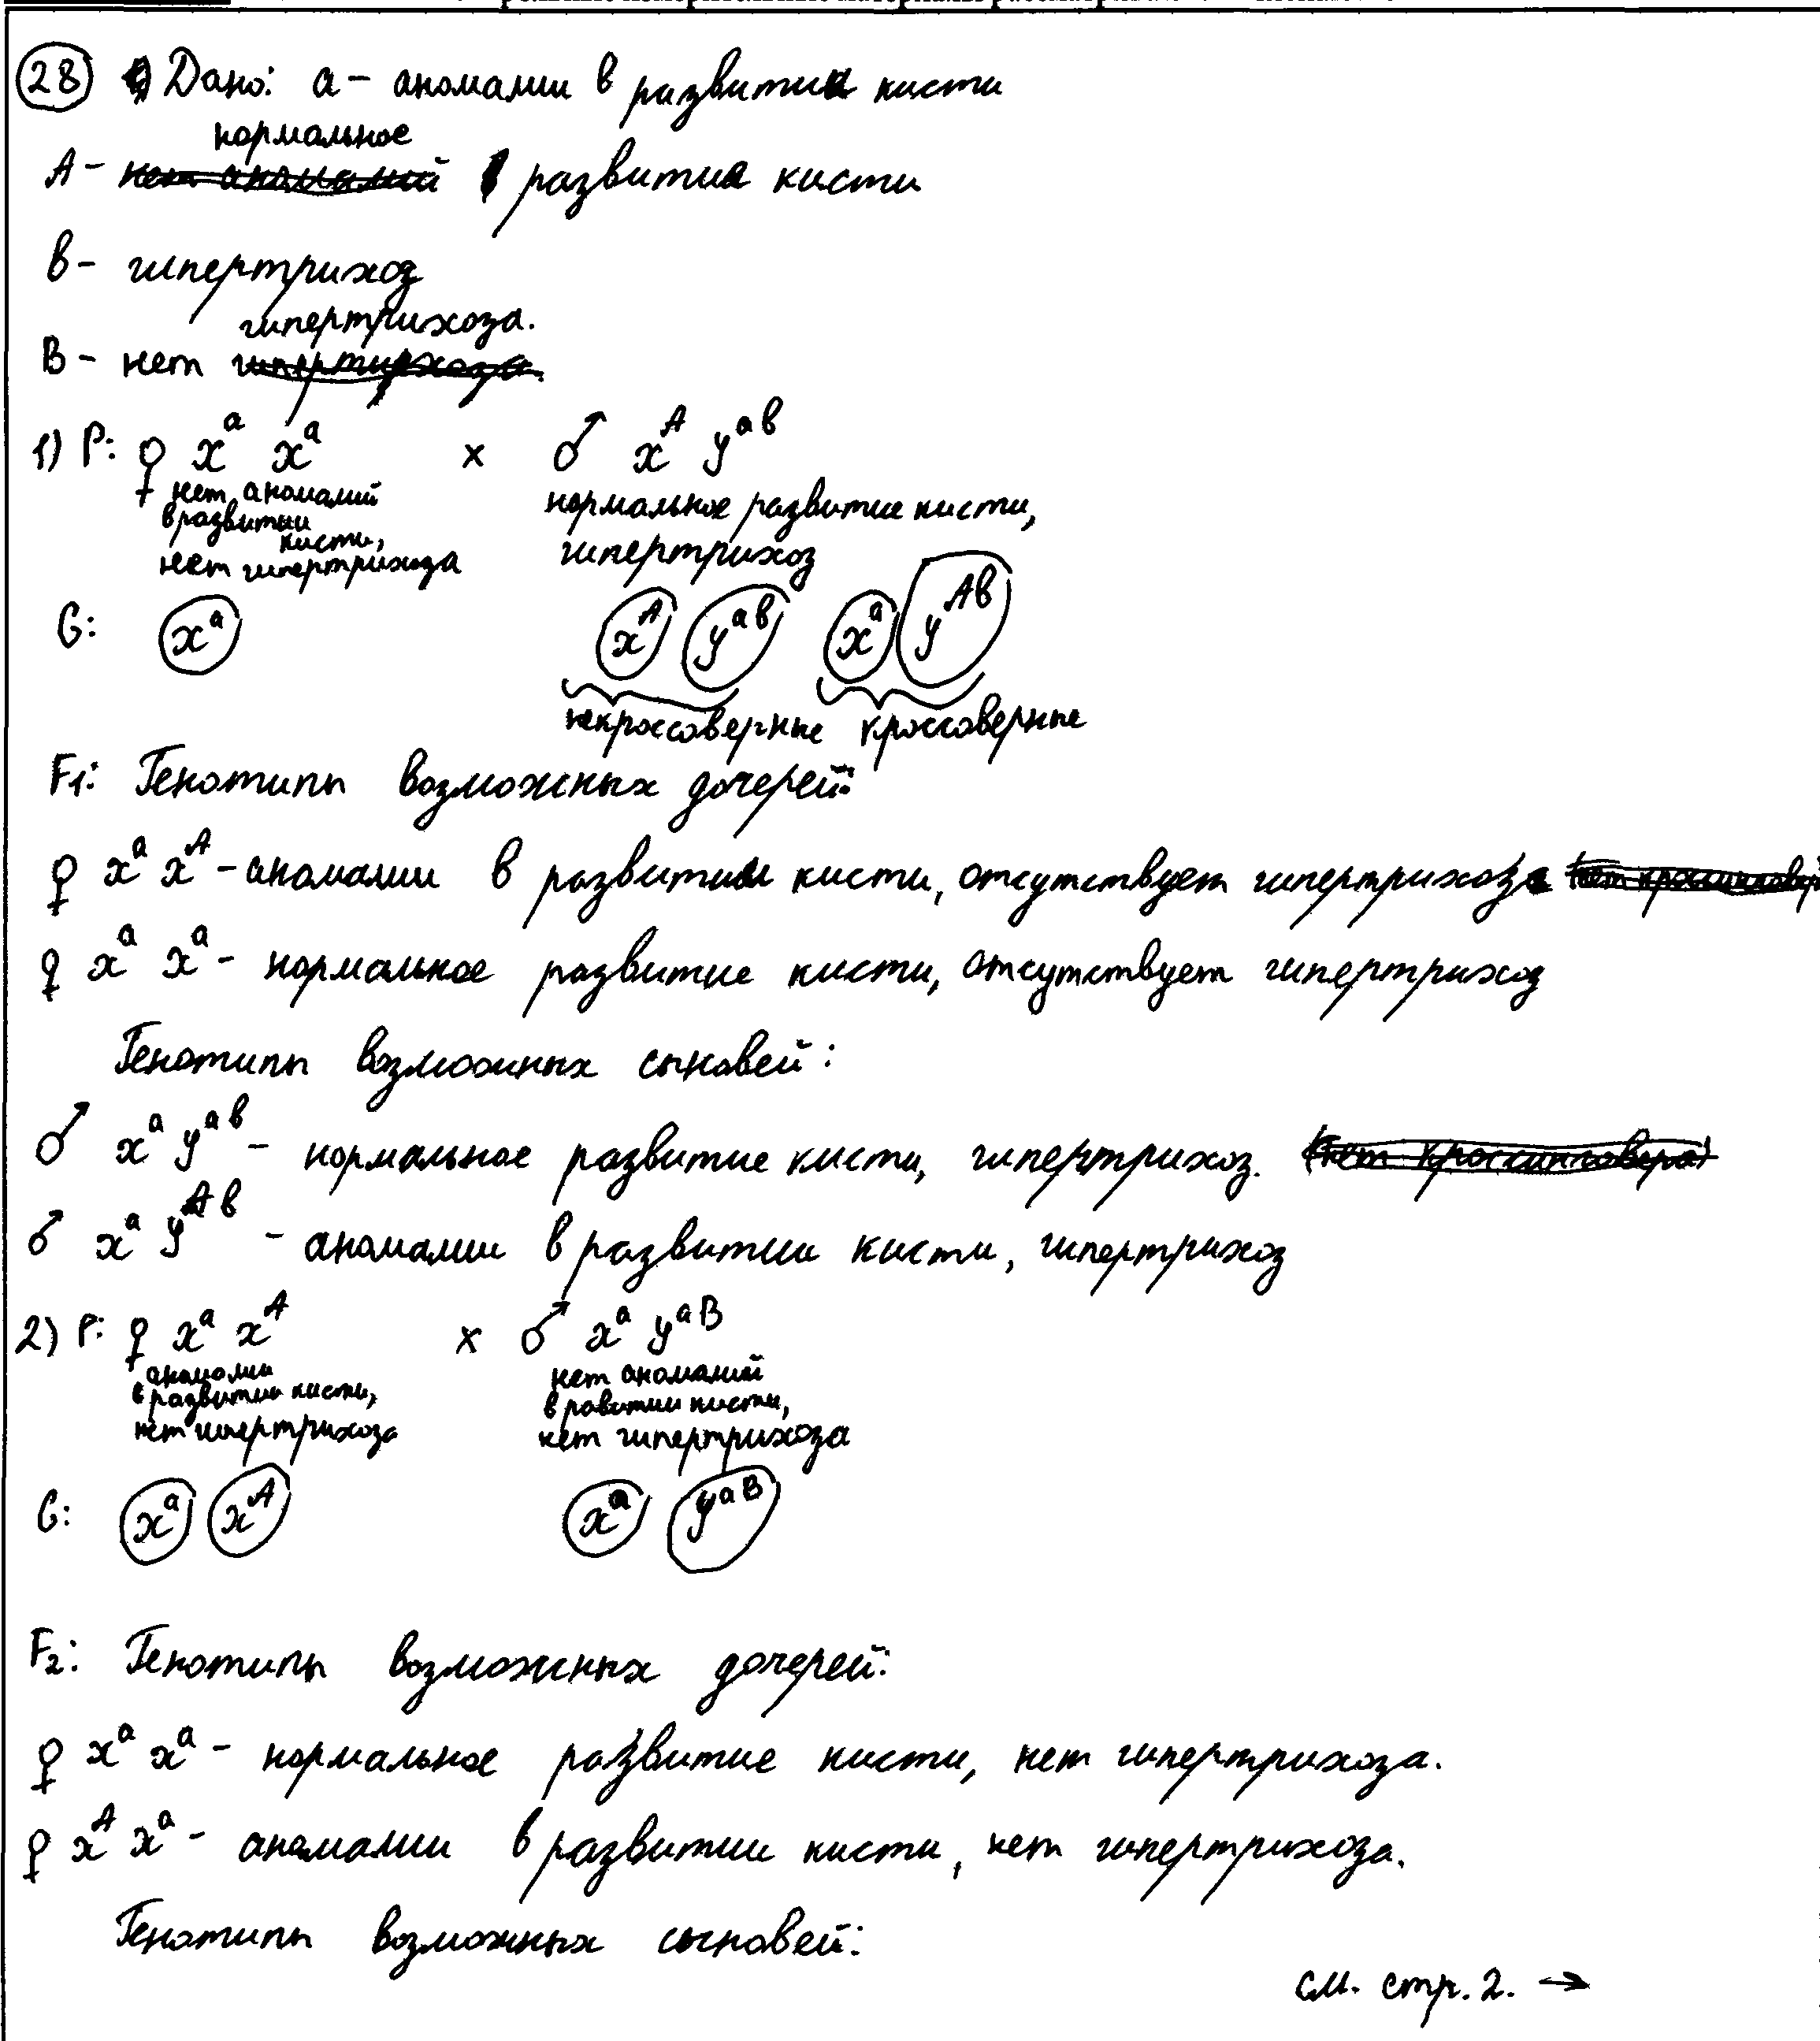 28 Дано: а - аномалии в развитии кисти
нормальное
А - нет аномалий развитие кисти
в - гипертрихоз
гипертрихоза.
В - нет гипертирхоза.
1) Р: ♀ x^a x^a × ♂ x^A y^ab
нет аномалий в развитии кисти, нет гипертрихоза
нормальное развитие кисти, гипертрихоз
G: x^a x^A y^ab x^a y^Ab
некроссоверные кроссоверные
F1: Генотипы возможных дочерей:
♀ x^a x^A - аномалии в развитии кисти, отсутствует гипертрихоз
♀ x^a x^a - нормальное развитие кисти, отсутствует гипертрихоз
Генотипы возможных сыновей:
♂ x^a y^ab - нормальное развитие кисти, гипертрихоз. (нет кроссинговера)
♂ x^a y^Ab - аномалии в развитии кисти, гипертрихоз
2) Р: ♀ x^a x^A × ♂ x^a y^aB
аномалии в развитии кисти, нет гипертрихоза
нет аномалий в равитии кисти, нет гипертрихоза
G: x^a x^A x^a y^aB
F2: Генотипы возможных дочерей:
♀ x^a x^a - нормальное развитие кисти, нет гипертрихоза.
♀ x^A x^a - аномалии в развитии кисти, нет гипертрихоза.
Генотипы возможных сыновей:
см. стр. 2. →